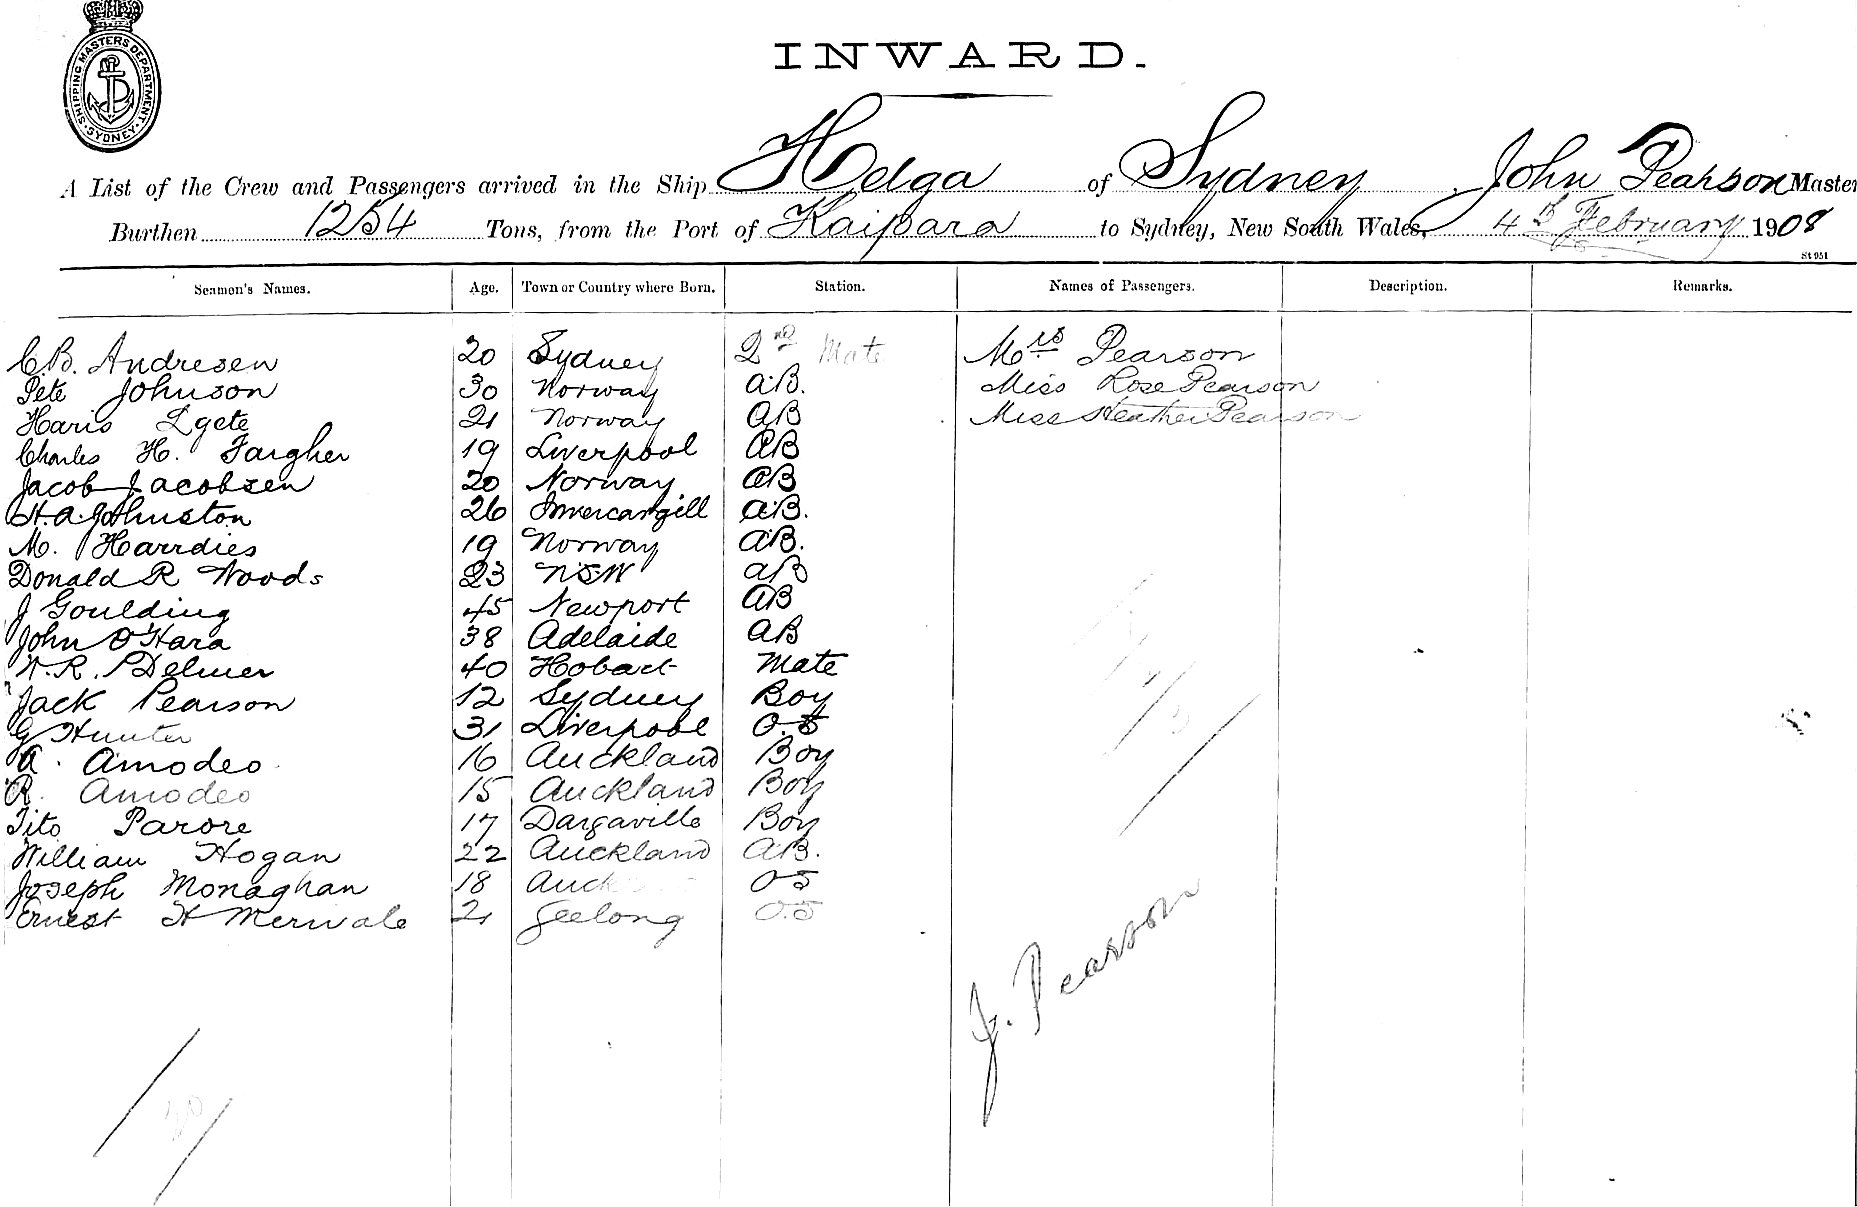 SHIPPING MASTERS DEPARTMENT · SYDNEY ·
INWARD.
A List of the Crew and Passengers arrived in the Ship Helga of Sydney, John Pearson Master
Burthen 1254 Tons, from the Port of Kaipara to Sydney, New South Wales, 4th February 1908
St 951
Seamen's Names. Age. Town or Country where Born. Station. Names of Passengers. Description. Remarks.
C.B. Andresen 20 Sydney 2nd Mate Mrs Pearson
Pete Johnson 30 Norway A.B. Miss Rose Pearson
Haris Lgete 21 Norway AB Miss Heather Pearson
Charles H. Fargher 19 Liverpool AB
Jacob Jacobsen 20 Norway AB
H.A. Johnston 26 Invercargill A.B.
M. Harrdies 19 Norway A.B.
Donald R Woods 23 NSW AB
J Goulding 45 Newport AB
John O'Hara 38 Adelaide AB
W.R. Delmer 40 Hobart Mate
Jack Pearson 12 Sydney Boy
G Hunter 31 Liverpool O.S
A. Amodeo 16 Auckland Boy
R. Amodeo 15 Auckland Boy
Tito Parore 17 Dargaville Boy
William Hogan 22 Auckland A.B.
Joseph Monaghan 18 Auck OS
Ernest H Merivale 21 Geelong O.S
J. Pearson